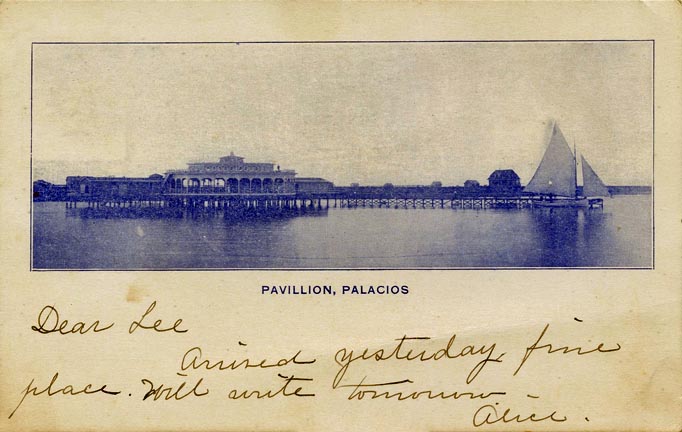 PAVILLION, PALACIOS
Dear Lee
Arrived yesterday, fine
place. Will write tomorrow -
Alice.